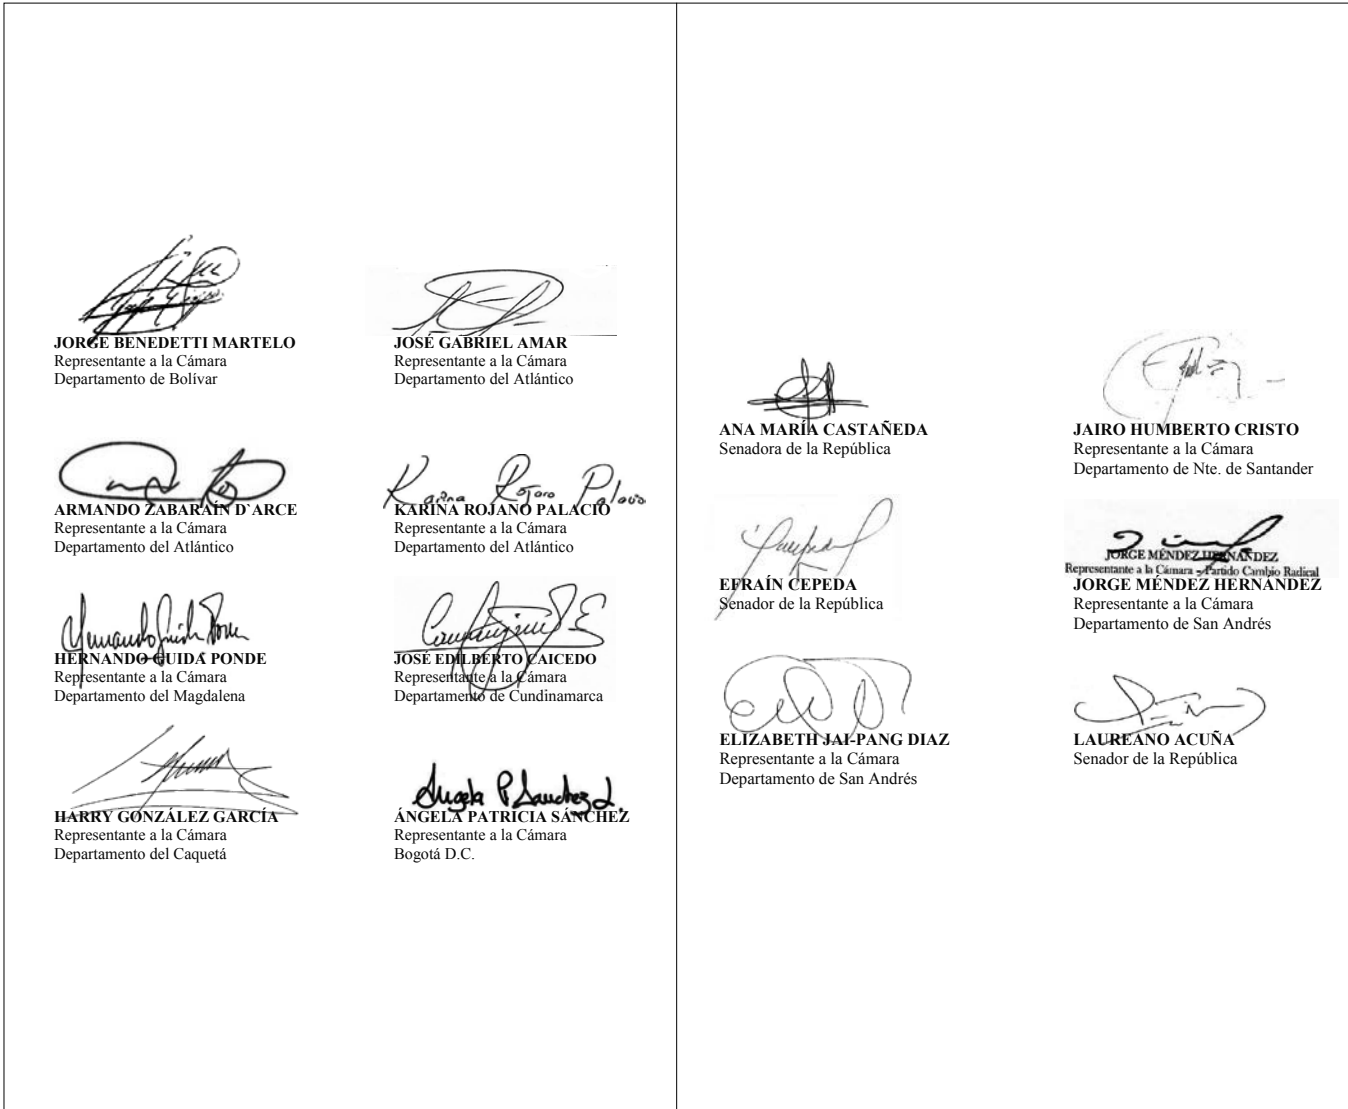 JORGE BENEDETTI MARTELO
Representante a la Cámara
Departamento de Bolívar
JOSÉ GABRIEL AMAR
Representante a la Cámara
Departamento del Atlántico
ARMANDO ZABARAÍN D`ARCE
Representante a la Cámara
Departamento del Atlántico
Karina Rojano Palacio
KARINA ROJANO PALACIO
Representante a la Cámara
Departamento del Atlántico
Hernando Guida Ponde
HERNANDO GUIDA PONDE
Representante a la Cámara
Departamento del Magdalena
JOSÉ EDILBERTO CAICEDO
Representante a la Cámara
Departamento de Cundinamarca
HARRY GONZÁLEZ GARCÍA
Representante a la Cámara
Departamento del Caquetá
Angela P Sanchez L.
ÁNGELA PATRICIA SÁNCHEZ
Representante a la Cámara
Bogotá D.C.
ANA MARÍA CASTAÑEDA
Senadora de la República
JAIRO HUMBERTO CRISTO
Representante a la Cámara
Departamento de Nte. de Santander
EFRAÍN CEPEDA
Senador de la República
JORGE MÉNDEZ HERNÁNDEZ
Representante a la Cámara - Partido Cambio Radical
JORGE MÉNDEZ HERNÁNDEZ
Representante a la Cámara
Departamento de San Andrés
ELIZABETH JAI-PANG DIAZ
Representante a la Cámara
Departamento de San Andrés
LAUREANO ACUÑA
Senador de la República